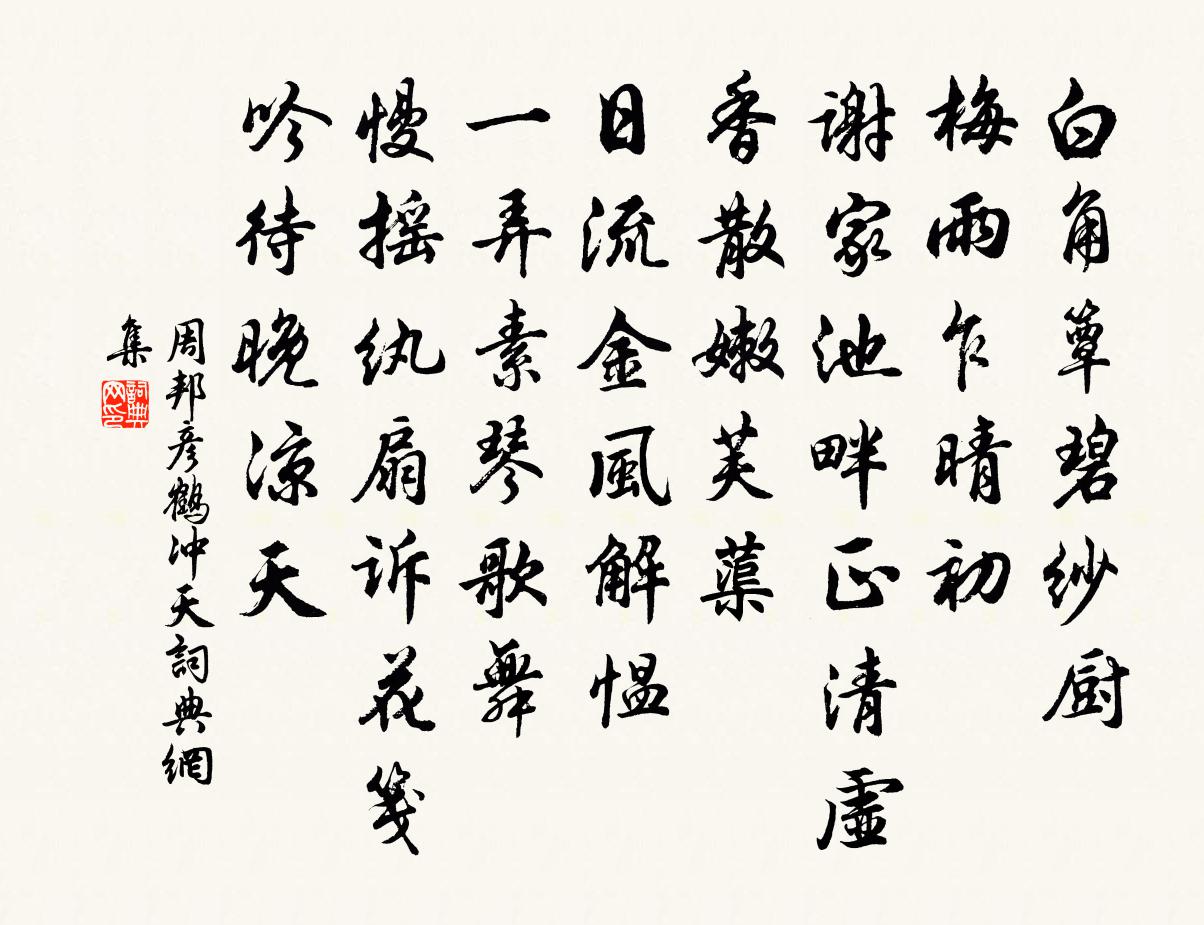 白角簟碧紗厨
梅雨乍晴初
謝家池畔正清虛
香散嫩芙蕖
日流金風解慍
一弄素琴歌舞
慢搖紈扇訴花箋
吟待晚涼天
周邦彦鶴冲天詞典網
集
詞典網印